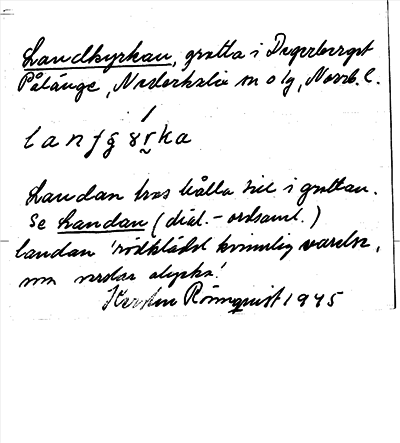 Landkyrkan, grotta i Degerberget
Pålänge, Nederkalix sn o lg, Norrb. l.
Landan tros hålla till i grottan.
Se Landan (dial.-ordsaml.)
landan 'rödklädd kvinnlig varelse,
som varslar olycka'.
Kerstin Rönnquist 1945